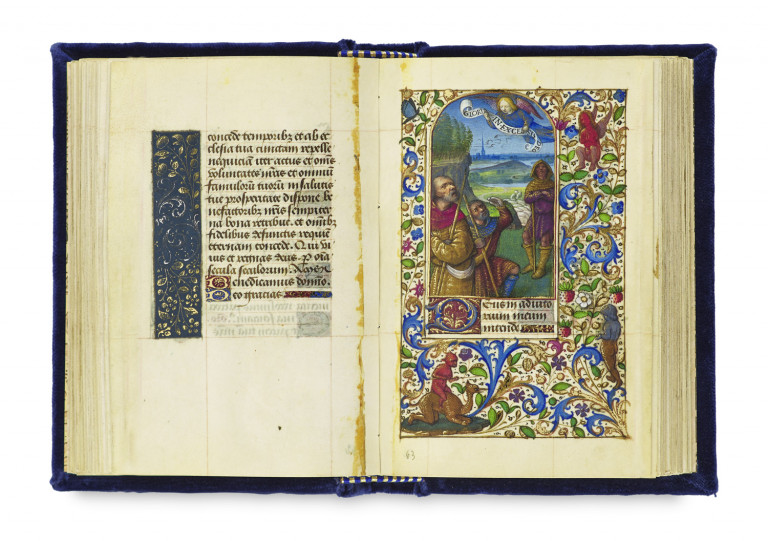 concede temporibꝫ et ab ec
clesia tua cunctam repelle
nequiciam iter actus et om̄s
voluntates nr̄as et omniū
famulorū tuorū in salutis
tue prosperitate dispone be
nefactoribꝫ nr̄is sempiter
na bona retribue. et om̄ibꝫ
fidelibus defunctis requiē
eternam concede. Qui viu
uis et regnas deus. P om̄a
secula seculorum. Amen
Benedicamus domino.
Deo gracias
GLORIA IN EXCELSIS
Deus in adiuto
rium meum
intende
63